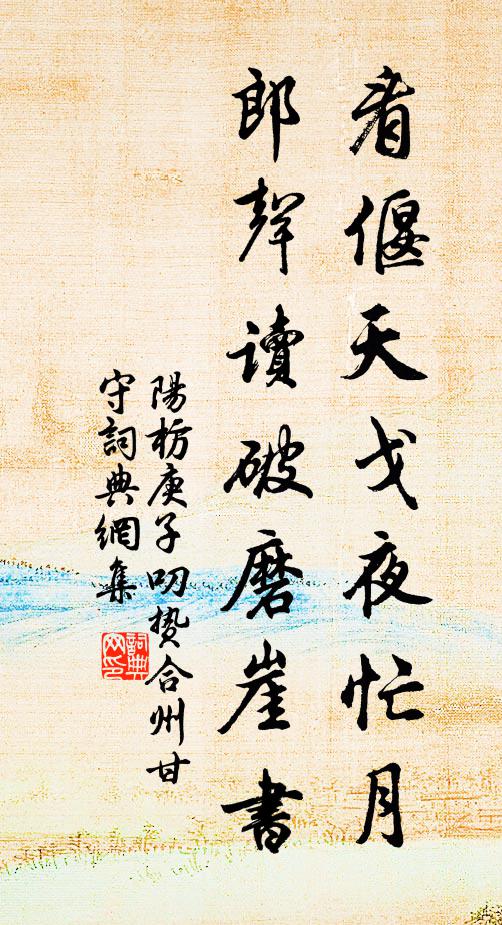 看偃天戈夜忙月
郎聲讀破磨崖書
陽枋庚子叨贽合州甘
守詞典網集
詞典
网印